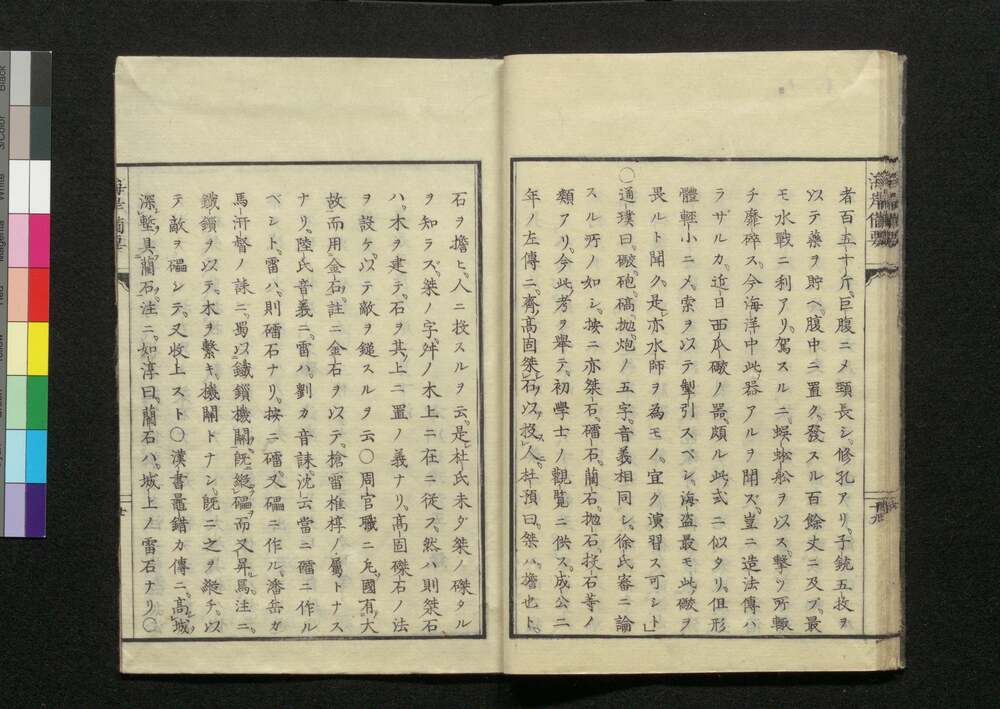 海岸備要
者百五十斤。巨腹ニメ頸長シ。修孔アリ。子銃五枚ヲ
以テ藥ヲ貯ヘ。腹中ニ置ク。發スル百餘丈ニ及ブ。最
モ水戰ニ利アリ。駕スルニ。蜈蚣舩ヲ以ス。擊ツ所輙
チ靡碎ス。今海洋中此器アルヲ聞ズ。豈ニ造法傳ハ
ラザルカ。近日西瓜礮ノ器。頗ル此式ニ似タリ。但形
體輕小ニメ。索ヲ以テ掣引スベシ。海盜最モ此礮ヲ
畏ルト聞ク。是亦水師ヲ為モノ。宜ク演習ス可シト」
〇通璞曰。礮。砲。碻。抛。炮ノ五字。音義相同シ。徐氏審ニ論
スル所ノ如シ。按ニ亦桀石。礌石。藺石。抛石。投石等ノ
類アリ。今此ノ考ヲ舉テ。初學士ノ觀覧ニ供ス。成公二
年ノ左傳ニ。齊ノ高固桀石以投人。杜預曰。桀ハ擔也ト。
石ヲ擔ヒ。人ニ投スルヲ云。是杜氏未ダ桀ノ磔タル
ヲ知ラズ。桀ノ字。舛ノ木上ニ在ニ從ス。然ハ則桀石
ハ。木ヲ建テ。石ヲ其上ニ置ノ義ナリ。高固磔石ノ法
ヲ設ケ。以テ敵ヲ鎚スルヲ云〇周官職ニ。凡國有大
故而用金石。註ニ金石ヲ以テ。槍雷椎椁ノ屬トナス
ナリ。陸氏音義ニ。雷ハ。劉カ音誄沈云當ニ礌ニ作ル
ベシト。雷ハ。則礌石ナリ。按ニ礌又礧ニ作ル。潘岳ガ
馬汧督ノ誄ニ。罵以鐵鎖機關。既縱礧而又昇焉。注ニ。
鐵鎖ヲ以テ。木ヲ繋キ。機關トナシ。既ニ之ヲ縱チ。以
テ敵ヲ礧シテ。又收上スト〇漢書鼂錯カ傳ニ。高城
深塹。具藺石。注ニ。如淳曰。藺石ハ。城上ノ雷石ナリ〇